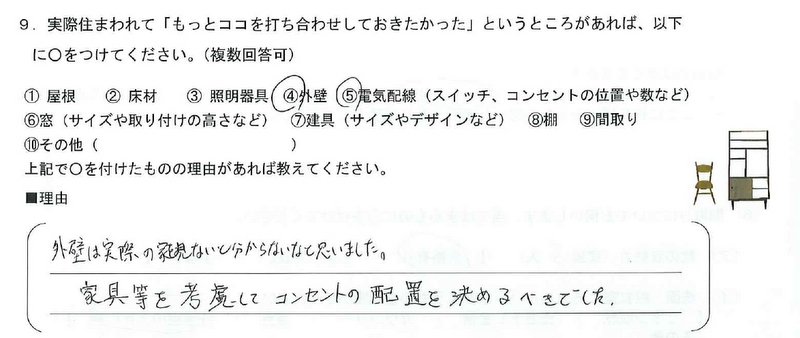 9．実際住まわれて「もっとココを打ち合わせしておきたかった」というところがあれば、以下
に○をつけてください。（複数回答可）
① 屋根　② 床材　③ 照明器具　④外壁　⑤電気配線（スイッチ、コンセントの位置や数など）
⑥窓（サイズや取り付けの高さなど）　⑦建具（サイズやデザインなど）　⑧棚　⑨間取り
⑩その他（　　　　　　　　　　）
上記で○を付けたものの理由があれば教えてください。
■理由
外壁は実際の家見ないと分からないなと思いました。
家具等を考慮してコンセントの配置を決めるべきでした．